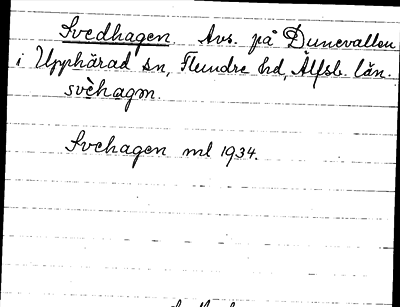 Svedhagen. Avs. på Dunevallen
i Upphärad sn, Flundre hd, Älfsb. län.
svèhagən.
Svehagen ml 1934.